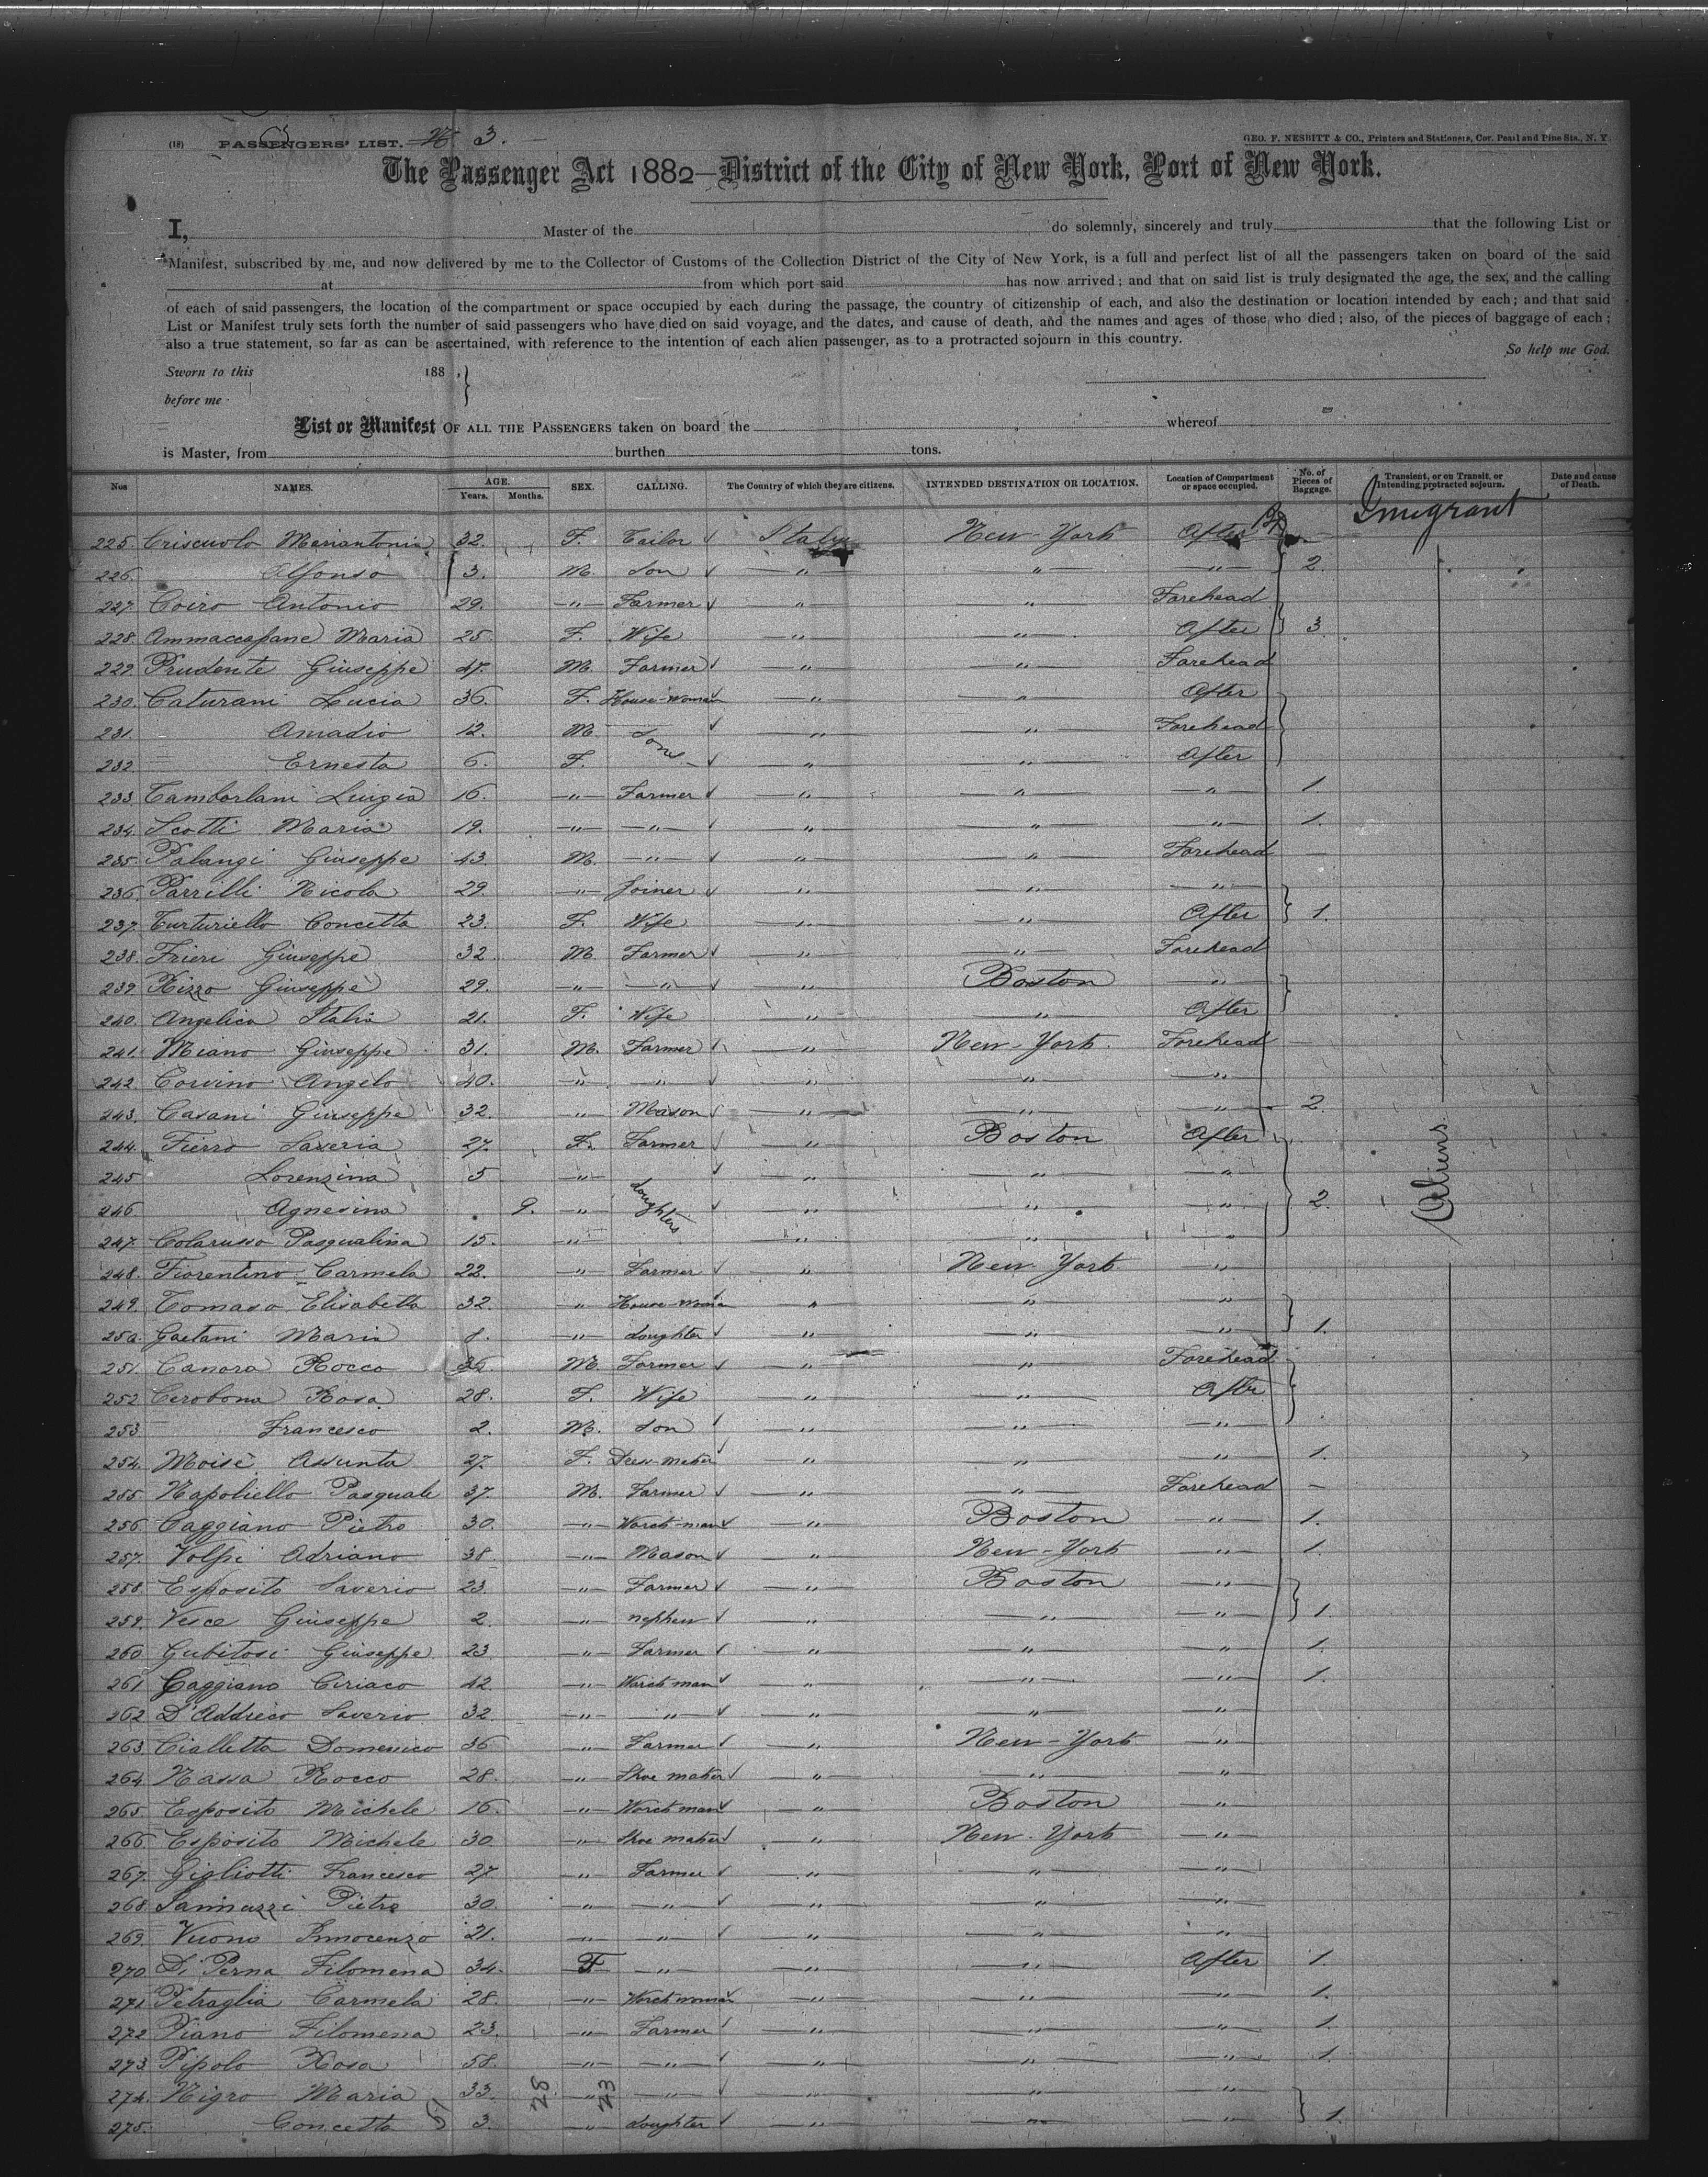 (18) PASSENGERS' LIST. 3.
GEO. F. NESBITT & CO., Printers and Stationers, Cor. Pearl and Pine Sts., N. Y.
The Passenger Act 1882—District of the City of New York, Port of New York.
I, Master of the do solemnly, sincerely and truly that the following List or
Manifest, subscribed by me, and now delivered by me to the Collector of Customs of the Collection District of the City of New York, is a full and perfect list of all the passengers taken on board of the said
at from which port said has now arrived; and that on said list is truly designated the age, the sex, and the calling
of each of said passengers, the location of the compartment or space occupied by each during the passage, the country of citizenship of each, and also the destination or location intended by each; and that said
List or Manifest truly sets forth the number of said passengers who have died on said voyage, and the dates, and cause of death, and the names and ages of those who died; also, of the pieces of baggage of each;
also a true statement, so far as can be ascertained, with reference to the intention of each alien passenger, as to a protracted sojourn in this country.
So help me God.
Sworn to this 188 , }
before me
List or Manifest OF ALL THE PASSENGERS taken on board the whereof
is Master, from burthen tons.
Nos NAMES. AGE. Years. Months. SEX. CALLING. The Country of which they are citizens. INTENDED DESTINATION OR LOCATION. Location of Compartment or space occupied. No. of Pieces of Baggage. Transient, or on Transit, or Intending protracted sojourn. Date and cause of Death.
225. Criscuolo Mariantonia 32. F. Tailor Italy New-York After Imigrant
226. Alfonso 3. M. Son " " " 2.
227. Coiro Antonio 29. " Farmer " " Forehead
228. Ammaccapane Maria 25. F. Wife " " After 3.
229. Prudente Giuseppe 47. M. Farmer " " Forehead
230. Caturani Lucia 36. F. House-woman " " After
231. Amadio 12. M. Sons " " Forehead
232. Ernesta 6. F. " " After
233. Tamborlani Luigia 16. " Farmer " " " 1.
234. Scotti Maria 19. " " " " " 1.
235. Palangi Giuseppe 43. M. " " " Forehead
236. Parrilli Nicola 29. " Joiner " " "
237. Turturiello Concetta 23. F. Wife " " After 1.
238. Frieri Giuseppe 32 M. Farmer " " Forehead
239. Rizzo Giuseppe 29. " " " Boston "
240. Angelica Italia 21. F. Wife " " After
241. Miano Giuseppe 31. M. Farmer " New-York. Forehead
242. Corvino Angelo 40. " " " " "
243. Casani Giuseppe 32. " Mason " " " 2.
244. Fierro Saveria 27. F. Farmer " Boston After
245 Lorenzina 5 " doughters " " "
246 Agnesina 9. " " " " 2. Aliens
247. Colarusso Pasqualina 15. " " " "
248. Fiorentino Carmela 22. " Farmer " New York "
249. Tomaso Elisabetta 32. " House-woman " " "
250. Gaetani Maria 8. " doughter " " " 1.
251. Canora Rocco 36 M. Farmer " " Forehead
252 Cerobona Rosa 28. F. Wife " " After
253 Francesco 2. M. Son " " "
254. Moise Assunta 27. F. Dress-maker " " " 1.
255. Napoliello Pasquale 37. M. Farmer " " Forehead –
256. Caggiano Pietro 30. " Worck-man " Boston " 1.
257. Volpi Adriano 38 " Mason " New-York " 1.
258. Esposito Saverio 23. " Farmer " Boston "
259. Vesce Giuseppe 2. " nephew " " " 1.
260. Gubitosi Giuseppe 23 " Farmer " " " 1.
261 Caggiano Ciriaco 42. " Worck man " " " 1.
262 D'Addrico Saverio 32. " " " " "
263. Cialletta Domenico 36 " Farmer " New-York "
264. Nassa Rocco 28. " Shoe maker " " "
265. Esposito Michele 16. " Worck man " Boston "
266. Esposito Michele 30 " Shoe maker " New-York "
267. Gigliotti Francesco 27 " Farmer " " "
268. Iannuzzi Pietro 30. " " " " "
269. Vuono Innocenzo 21. " " " " "
270. Di Perna Filomena 34. F " " " After 1.
271. Petraglia Carmela 28. " Worck woman " " " 1.
272. Piano Filomena 23. " Farmer " " " 1.
273. Pipolo Rosa 58. " " " " " 1.
274. Nigro Maria 33. " " " " "
275. Concetta 3. " doughter " " " 1.
28 23